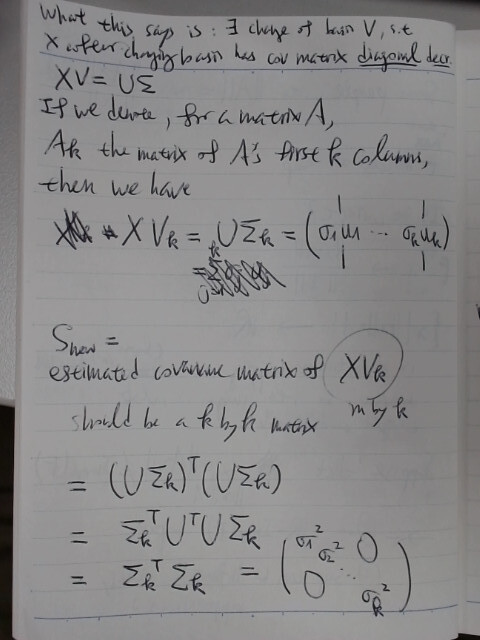 What this says is : ∃ change of basis V, s.t
X after changing basis has cov matrix diagonal decr.
XV = UΣ
If we denote, for a matrix A,
Ak the matrix of A's first k columns,
then we have
X Vk = UΣk = (σ1u1 ... σkuk)
Snew =
estimated covariance matrix of XVk
should be a k by k matrix
m by k
= (UΣk)ᵀ(UΣk)
= Σkᵀ Uᵀ U Σk
= Σkᵀ Σk = (σ1² σ2² 0 0 ... σk²)